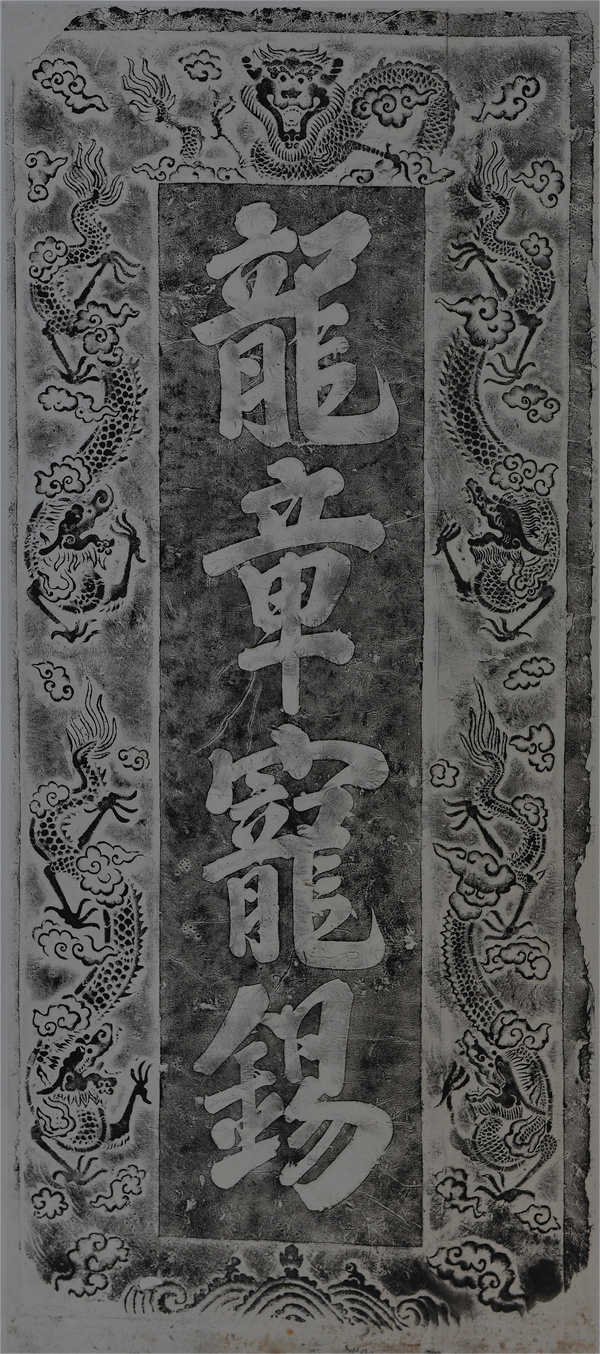 龍章寵錫